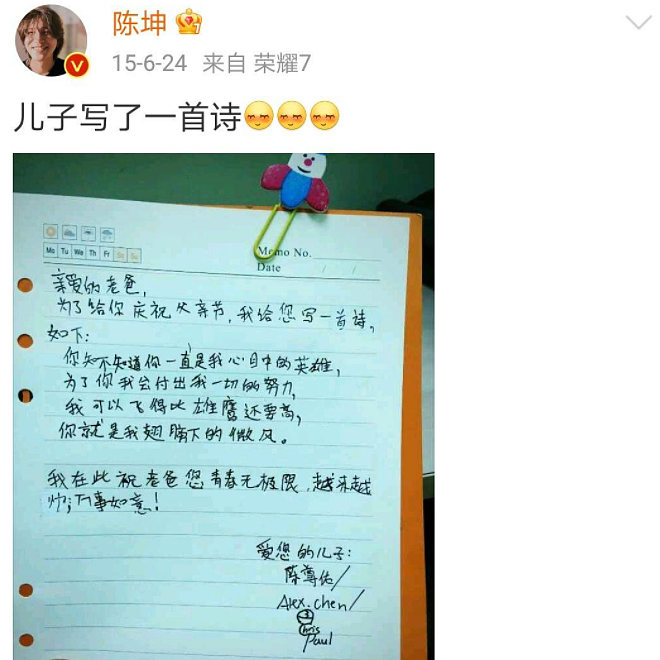 陈坤
15-6-24 来自 荣耀7
儿子写了一首诗
Memo No.
Mo Tu We Th Fr Sa Su
Date / /
亲爱的老爸,
为了给你庆祝父亲节,我给您写一首诗,
如下:
你知不知道你一直是我心目中的英雄,
为了你我会付出我一切的努力,
我可以飞得比雄鹰还要高,
你就是我翅膀下的微风。
我在此祝老爸您青春无极限,越来越
帅,万事如意!
爱您的儿子:
陈尊佑/
Alex.chen/
Chris
Paul